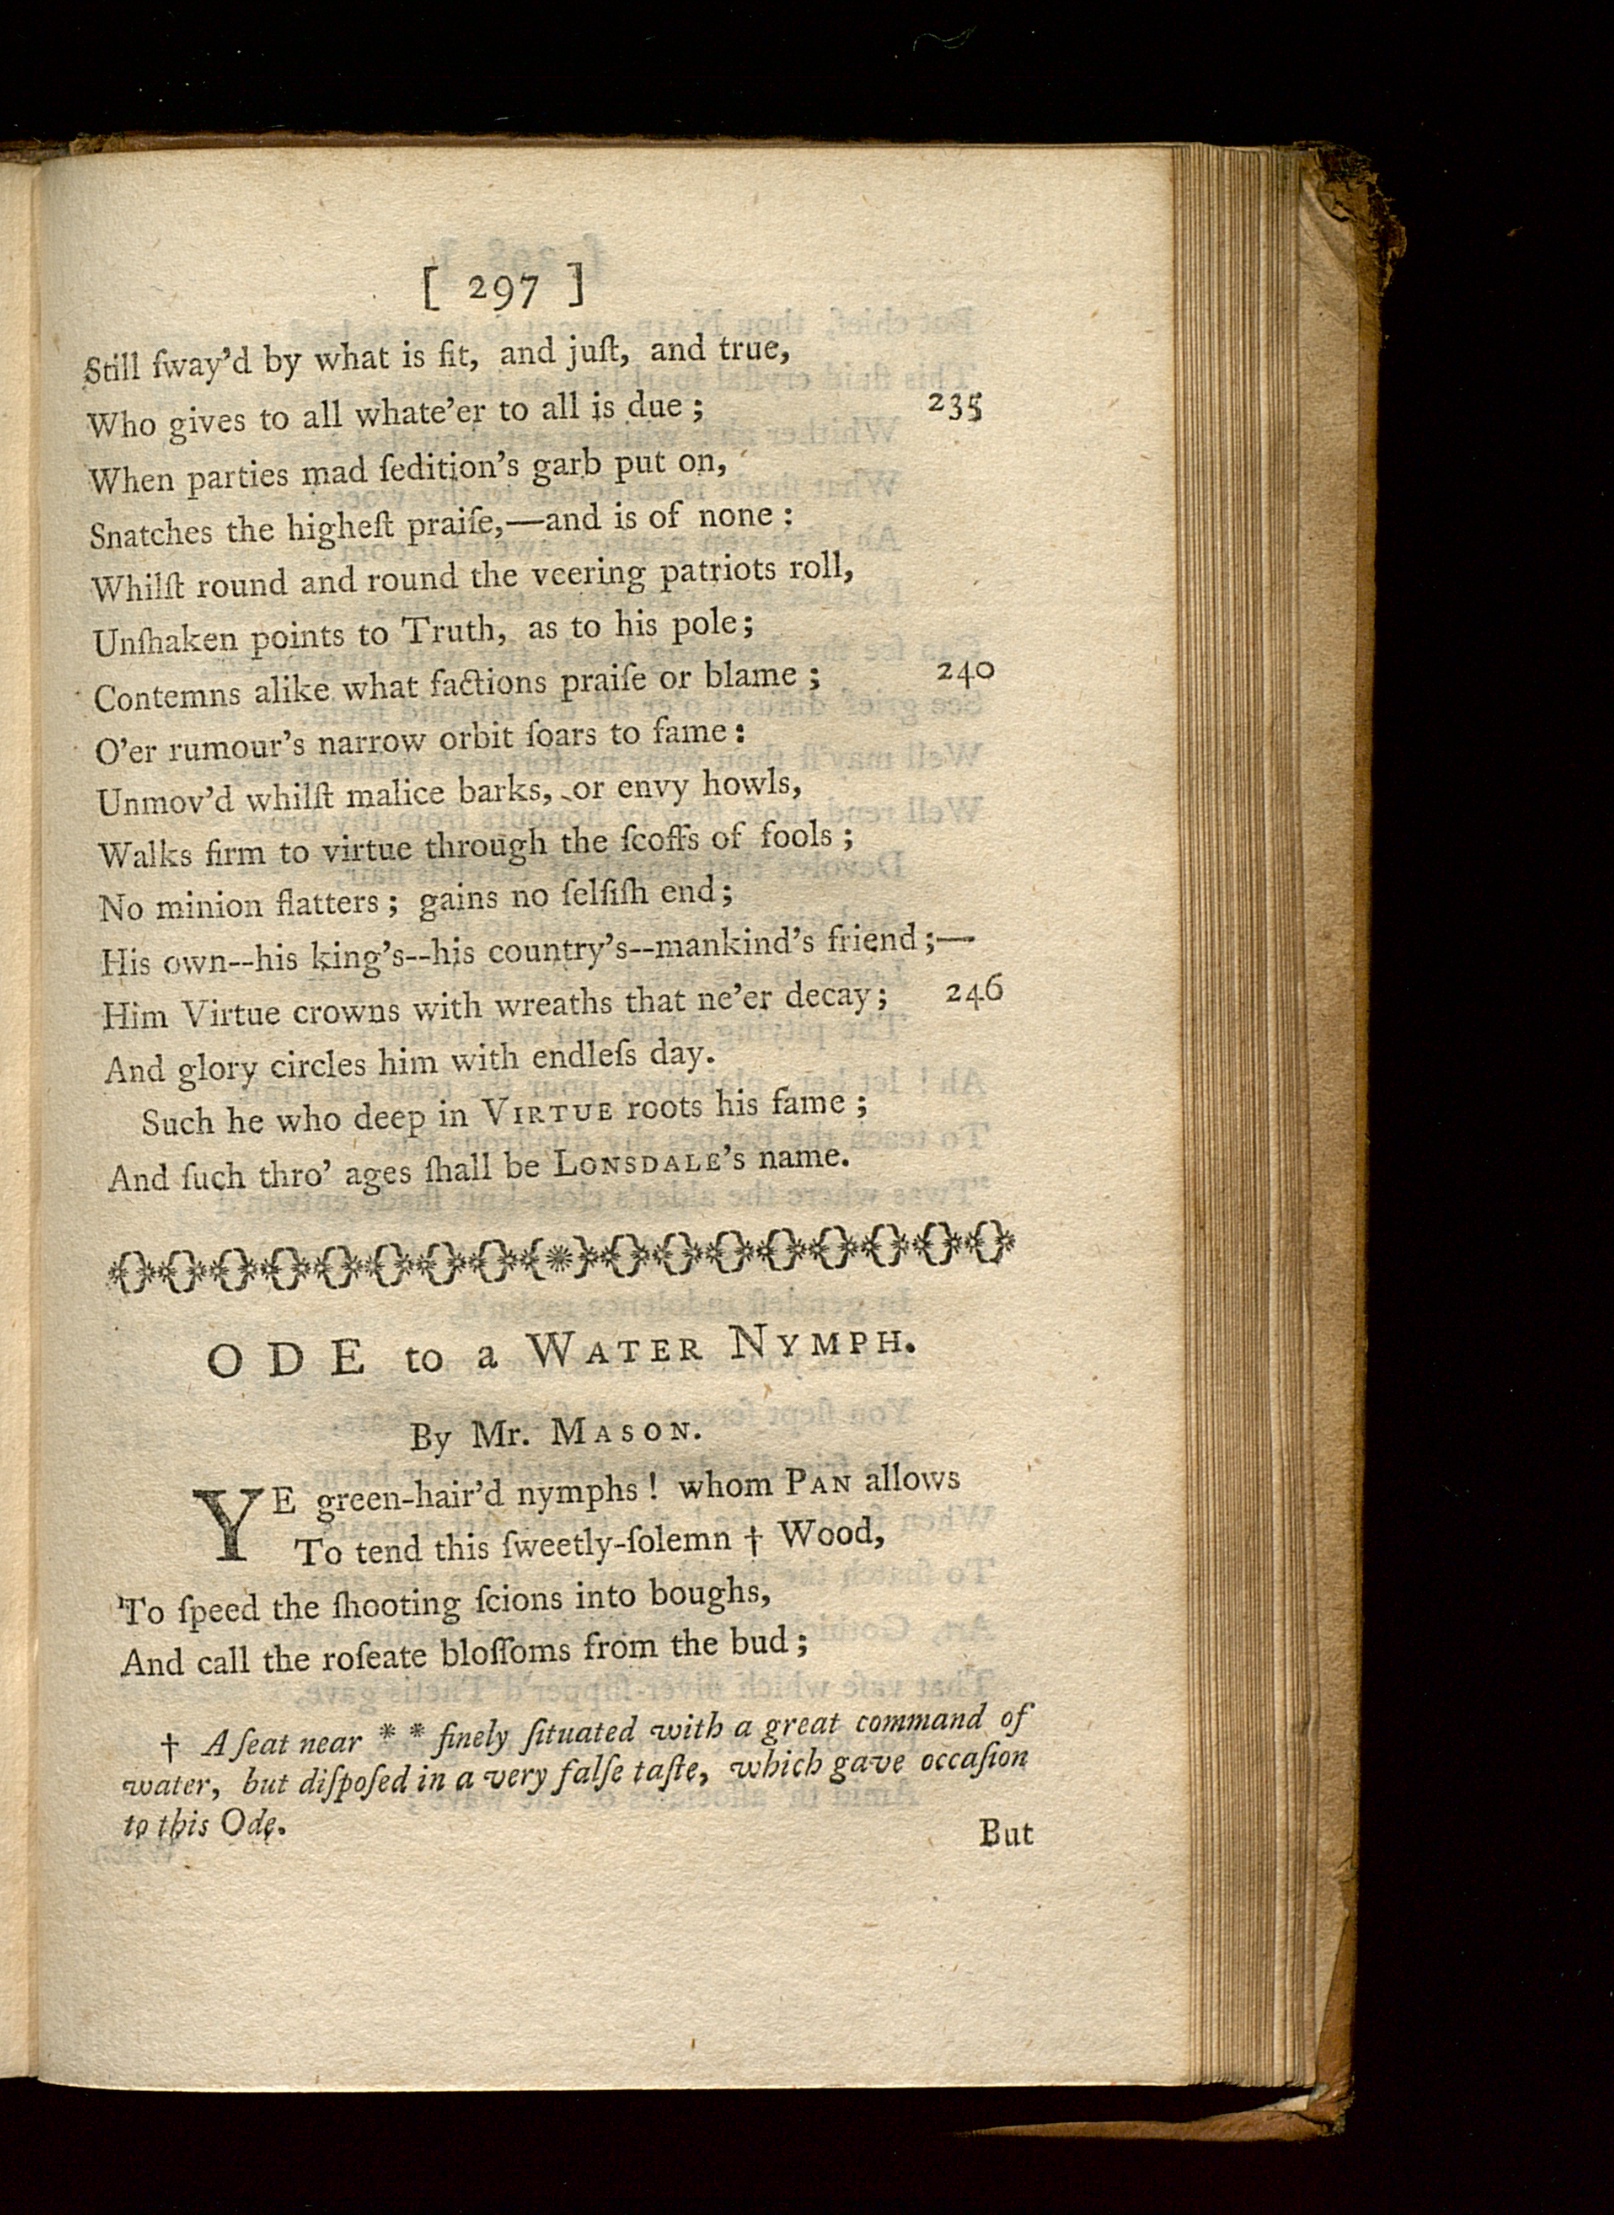 [ 297 ]
Still ſway'd by what is fit, and juſt, and true,
Who gives to all whate'er to all is due ; 235
When parties mad ſedition's garb put on,
Snatches the higheſt praiſe,—and is of none :
Whilſt round and round the veering patriots roll,
Unſhaken points to Truth, as to his pole;
Contemns alike what factions praiſe or blame ; 240
O'er rumour's narrow orbit ſoars to fame :
Unmov'd whilſt malice barks, or envy howls,
Walks firm to virtue through the ſcoffs of fools ;
No minion flatters ; gains no ſelfiſh end;
His own--his king's--his country's--mankind's friend ;—
Him Virtue crowns with wreaths that ne'er decay; 246
And glory circles him with endleſs day.
Such he who deep in VIRTUE roots his fame ;
And ſuch thro' ages ſhall be LONSDALE's name.
ODE to a WATER NYMPH.
By Mr. MASON.
YE green-hair'd nymphs ! whom PAN allows
To tend this ſweetly-ſolemn † Wood,
To ſpeed the ſhooting ſcions into boughs,
And call the roſeate bloſſoms from the bud ;
† A ſeat near * * finely ſituated with a great command of
water, but diſpoſed in a very falſe taſte, which gave occaſion
to this Ode.
But